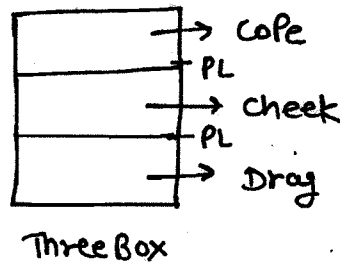 Cope
PL
Cheek
PL
Drag
Three Box